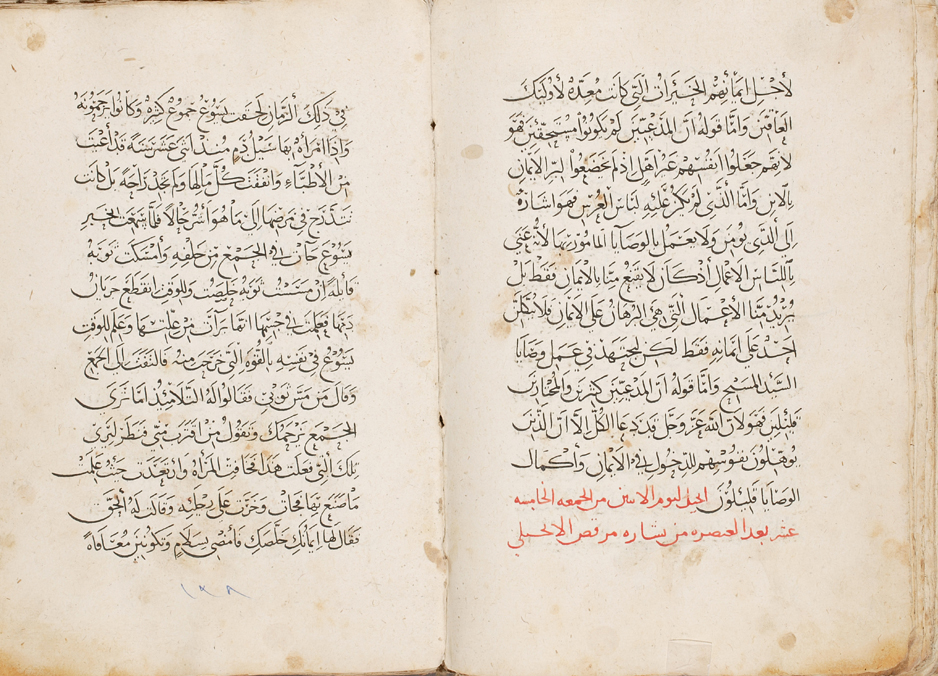 لاجل ايمانهم الخيرات التي كانت معدة لاوليك
العاقين واما قوله ان المدعيين لم يكونوا مستحقين فهو
لانهم جعلوا انفسهم غير اهل اذ لم يخضعوا لسر الايمان
بالابن واما الذي لم يكن عليه لباس العرس فهو اشارة
الى الذي يومن ولا يعمل بالوصايا المامور بها لانه عني
باللباس الاعمال اذ كان لا يقنع منا بالايمان فقط بل
يريد منا الاعمال التي هي البرهان على الايمان فلا يتكلن
احد على ايمانه فقط لكن ليجتهد في عمل وصايا
السيد المسيح واما قوله ان المدعيين كثيرين والمختارين
قليلين فهو لان الله عز وجل قد دعا الكل الا ان الذين
يوهلون نفوسهم للدخول في الايمان واكمال
الوصايا قليلون انجيل ليوم الاثنين من الجمعه الخامسه
عشر بعد العنصره من بشاره مرقص الانجيلي
في ذلك الزمان لحقت يسوع جموع كثيره وكانوا يزحمونه
واذا امراه بها سيل دم منذ اثنتي عشر سنة قد اعيت
من الاطباء وانفقت كل مالها ولم تجد راحه بل كانت
تتدرج في مرضها الى ما هو اشر حالا فلما سمعت الخبر
بيسوع جات في الجمع من خلفه وامسكت ثوبه
قائلة ان مسست ثوبه خلصت وللوقت انقطع جريان
دمها فعلمت في جسمها انها برات من علتها وعلم للوقت
يسوع في نفسه بالقوه التي خرجت منه فالتفت الى الجمع
وقال من مس ثوبي فقالوا له التلاميذ اما ترى
الجمع يزحمك وتقول من اقترب مني فنظر ليرى
تلك التي فعلت هذا فخافت المراه وارتعدت حيث علمت
ما صنع بها فجات وخرت على رجليه وقالت له الحق
فقال لها ايمانك خلصك فامضي بسلام وتكونين معافاة
١٣٨